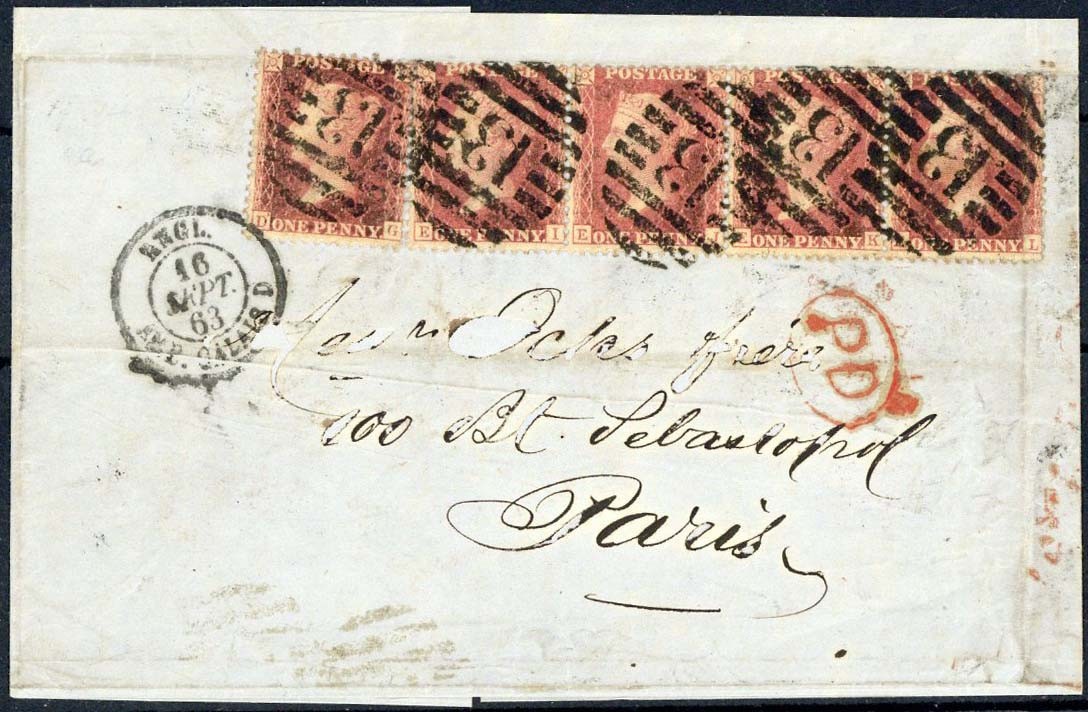 POSTAGE
POSTAGE
D ONE PENNY G
E ONE PENNY I
E ONE PENNY J
E ONE PENNY K
ONE PENNY L
13
13
13
13
ANGL.
16
SEPT.
63
AMB. CALAIS D
PD
Ocks frère
100 Bt. Sebastopol
Paris